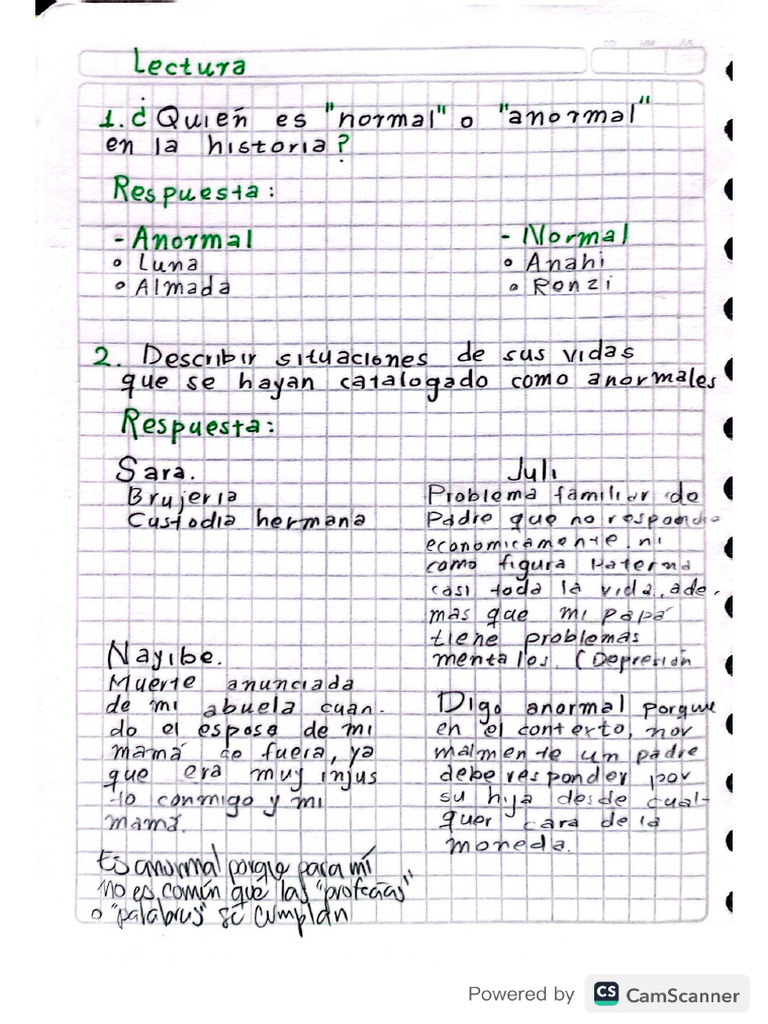 Lectura
1. ¿Quién es "normal" o "anormal"
en la historia?
Respuesta:
- Anormal
• Luna
• Almada
- Normal
• Anahi
• Ronzi
2. Describir situaciones de sus vidas
que se hayan catalogado como anormales
Respuesta:
Sara.
Brujeria
Custodia hermana
Juli
Problema familiar de
Padre que no respondia
economicamente, ni
como figura Paterna
casi toda la vida, ade-
mas que mi papá
tiene problemas
mentales. (Depresión
Digo anormal porque
en el contexto, nor
malmente un padre
debe responder por
su hija desde cual-
quer cara de la
moneda.
Nayibe.
Muerte anunciada
de mi abuela cuan-
do el esposo de mi
mamá se fuera, ya
que era muy injus
-to conmigo y mi
mamá.
Es anormal porque para mí
no es común que las "profecías"
o "palabras" se cumplan
Powered by CS CamScanner